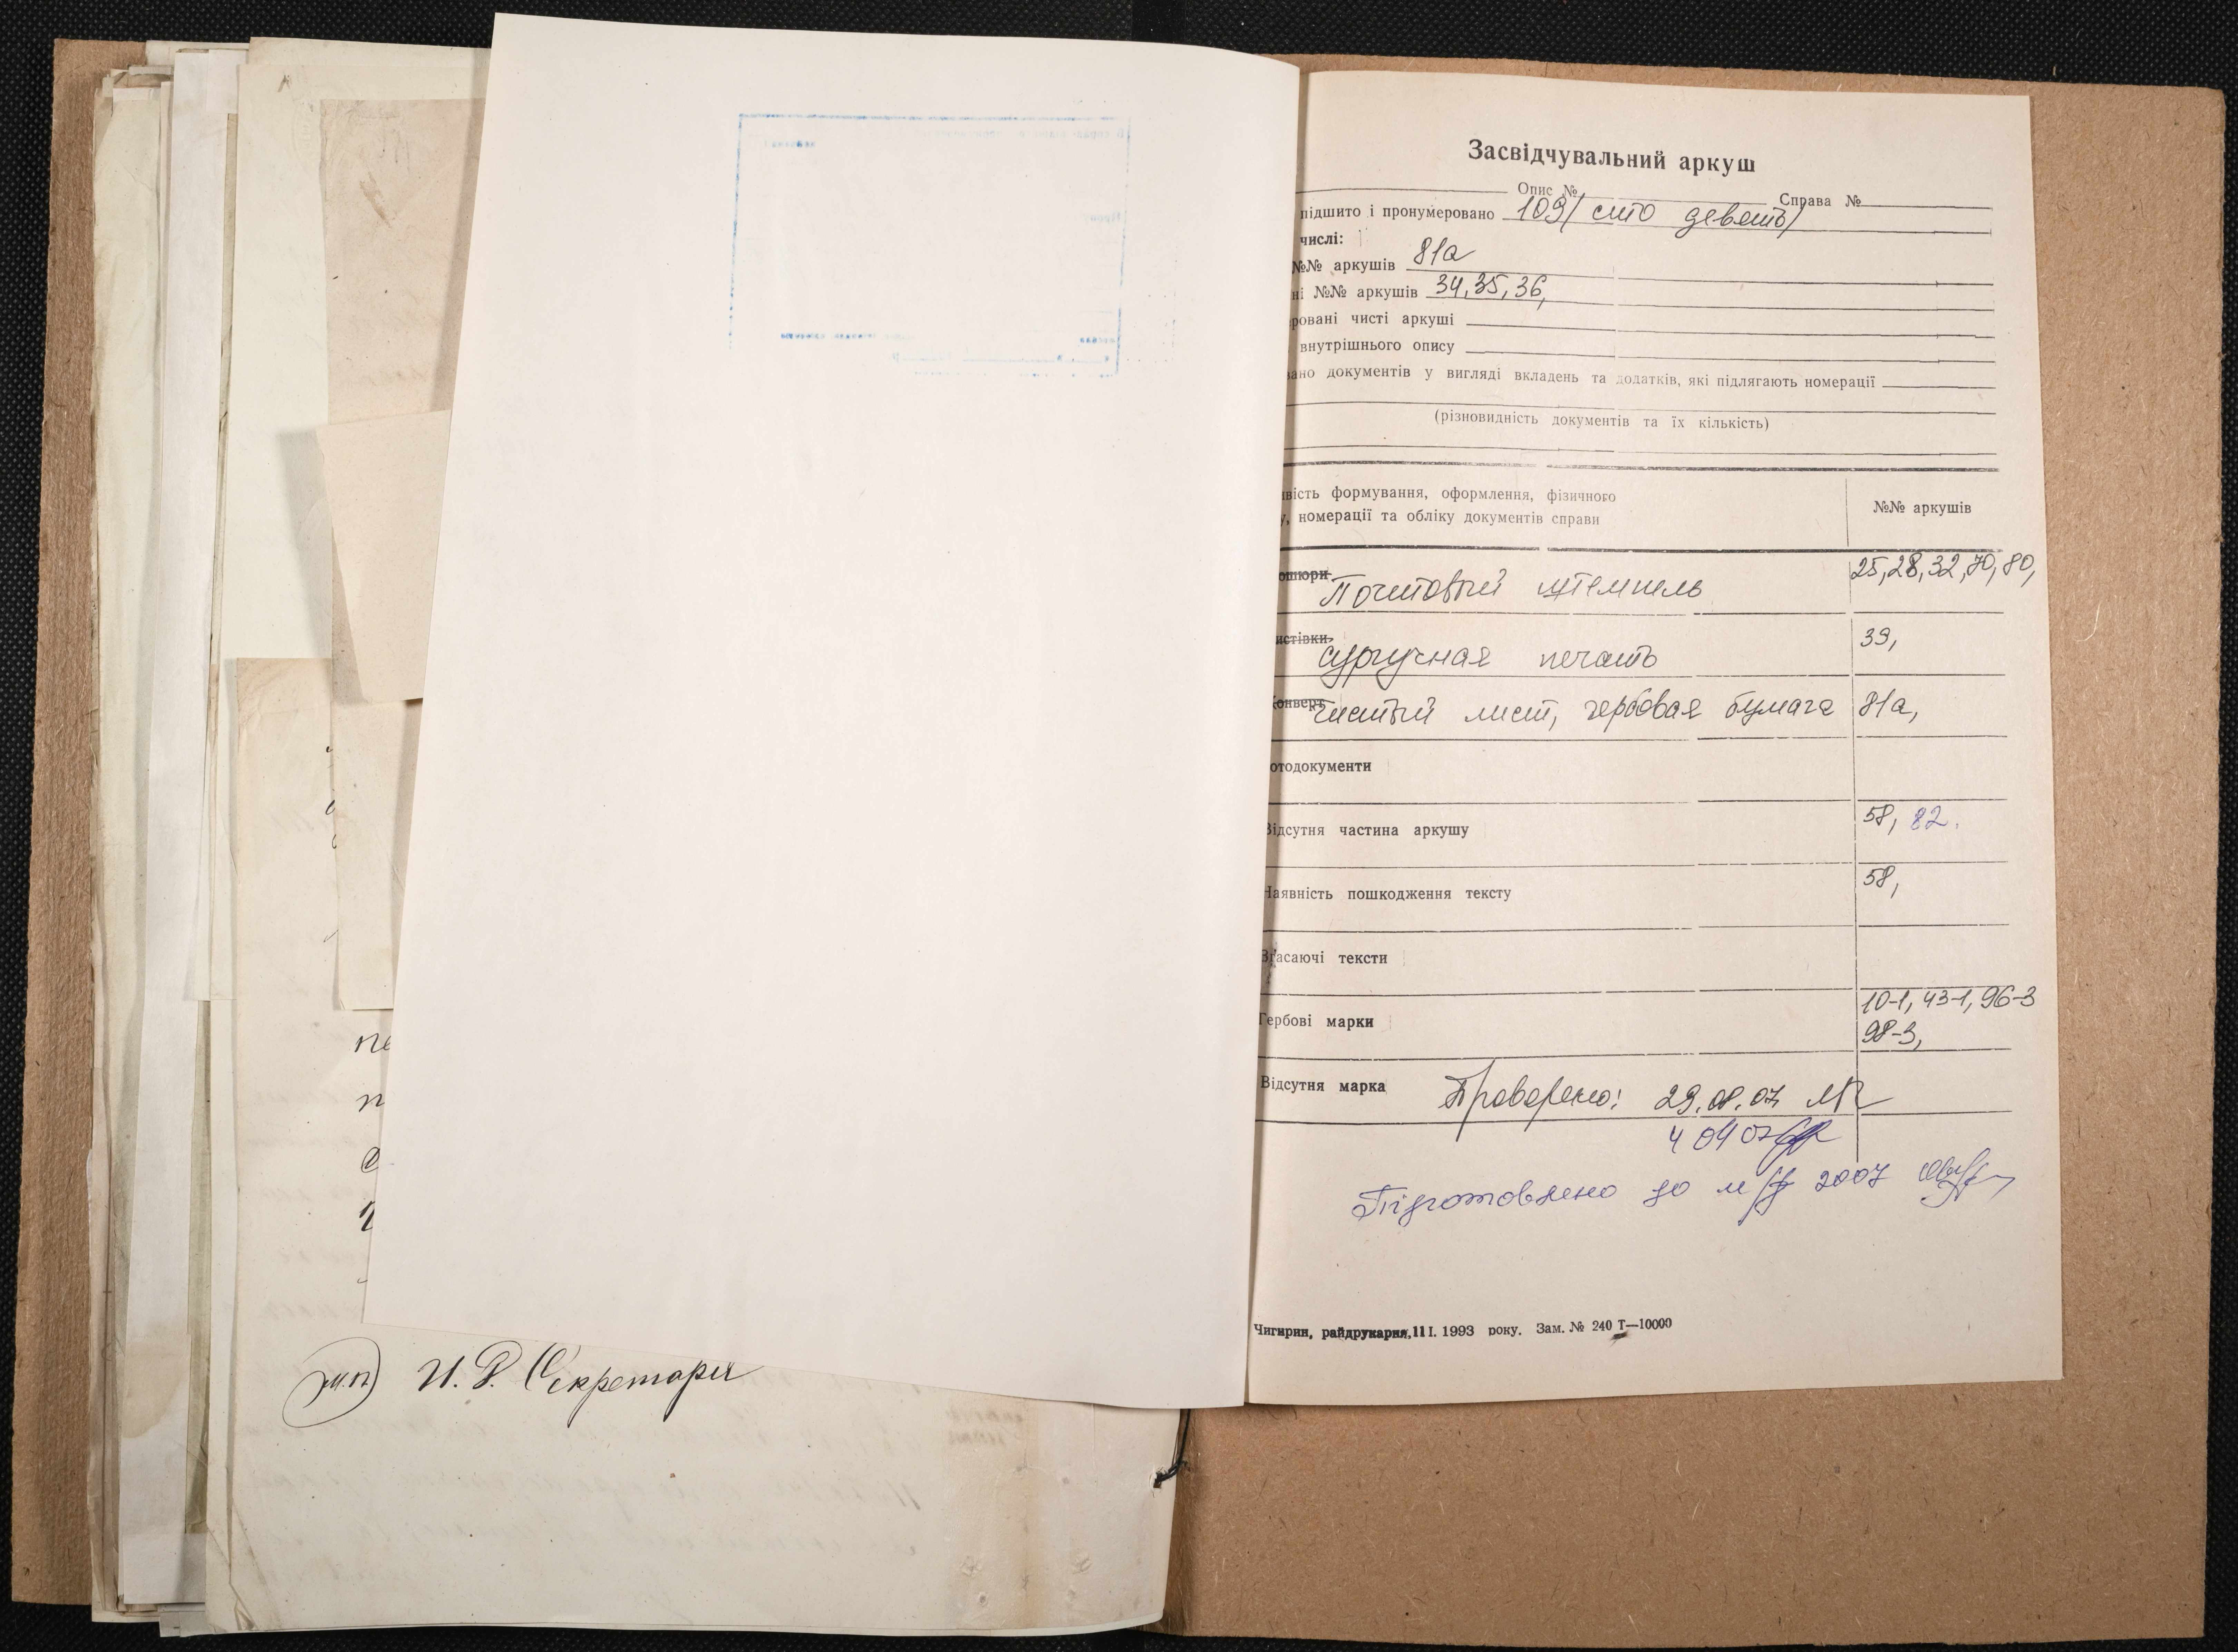 м.п. И. Д. Секретаря
Засвідчувальний аркуш
Опис № Справа №
підшито і пронумеровано 109/ сто девять/
числі:
№№ аркушів 81а
ні №№ аркушів 34, 35, 36,
ровані чисті аркуші
внутрішнього опису
вано документів у вигляді вкладень та додатків, які підлягають номерації
(різновидність документів та їх кількість)
вість формування, оформлення, фізичного
у, номерації та обліку документів справи
№№ аркушів
ошюри Почтовый штемпель 25, 28, 32, 70, 80,
истівки сургучная печать 39,
Конверт Чистый лист, гербовая бумага 81а,
отодокументи
Відсутня частина аркушу 58, 82.
Наявність пошкодження тексту 58,
Згасаючі тексти
Гербові марки 10-1, 43-1, 96-3
98-3,
Відсутня марка Проверено: 29.08.07
4 09 07
Підготовлено до м/ф 2007
Чигирин, райдрукарня, 11 I. 1993 року. Зам. № 240 Т—10000